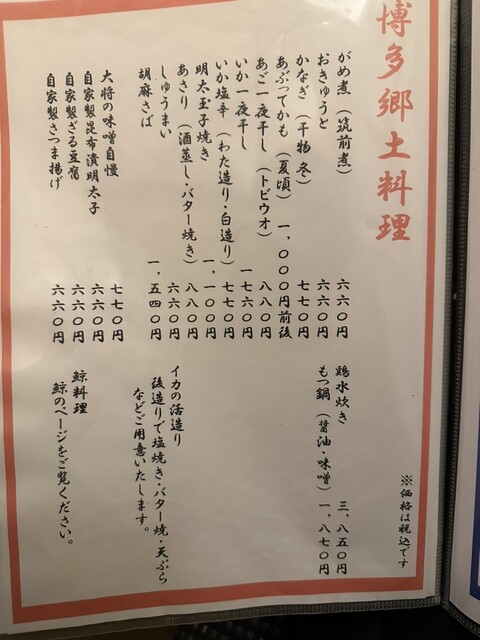 博多郷土料理
がめ煮（筑前煮） 六六〇円
おきゅうと 六六〇円
かなぎ（干物 冬） 七七〇円
あぶってかも（夏頃） 一、〇〇〇円前後
あご一夜干し（トビウオ） 八八〇円
いか一夜干し 一、七六〇円
いか塩辛（わた造り・白造り） 七七〇円
明太玉子焼き 一、一〇〇円
あさり（酒蒸し・バター焼き） 八八〇円
しゅうまい 六六〇円
胡麻さば 一、五四〇円
大将の味噌自慢 七七〇円
自家製昆布漬明太子 六六〇円
自家製ざる豆腐 六六〇円
自家製さつま揚げ 六六〇円
※価格は税込です
鶏水炊き 三、八五〇円
もつ鍋（醤油・味噌） 一、八七〇円
イカの活造り
後造りで塩焼き・バター焼・天ぷら
などご用意いたします。
鯨料理
鯨のページをご覧ください。